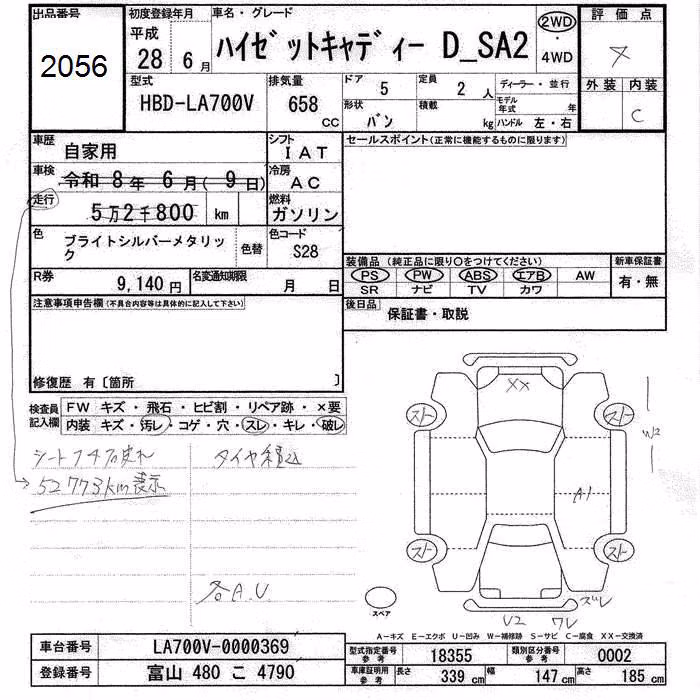 出品番号 初度登録年月 車名・グレード 2WD 評価点
2056 平成 28年 6月 ハイゼットキャディー D_SA2 4WD
型式 HBD-LA700V 排気量 658 CC ドア 5 定員 2 人 ディーラー・並行 外装 内装
形状 バン 積載 kg モデル年式 年 ハンドル 左・右 C
車歴 自家用 シフト IAT セールスポイント(正常に機能するものに限ります)
車検 令和 8年 6月(9日) 冷房 AC
走行 5万2千800 km 燃料 ガソリン
色 ブライトシルバーメタリック 色替 色コード S28
装備品(純正品に限り○をつけてください) 新車保証書
R券 9,140円 名変通知期限 月 日 PS PW ABS エアB AW 有・無
SR ナビ TV カワ
注意事項申告欄(不具合内容等は具体的に記入して下さい) 後日品 保証書・取説
修復歴 有〔箇所 〕
検査員記入欄 FW キズ・飛石・ヒビ割・リペア跡・×要
内装 キズ・汚レ・コゲ・穴・スレ・キレ・破レ
タイヤ積込
52773km表示
各A.U.
XX
スト スト
W2
A1
スト スト
スペア
U2 ワレ ズレ
A－キズ E－エクボ U－凹み W－補修跡 S－サビ C－腐食 XX－交換済
車台番号 LA700V-0000369 型式指定番号 参考 18355 類別区分番号 参考 0002
登録番号 富山 480 こ 4790 車庫証明用 参考 長さ 339 cm 幅 147 cm 高さ 185 cm